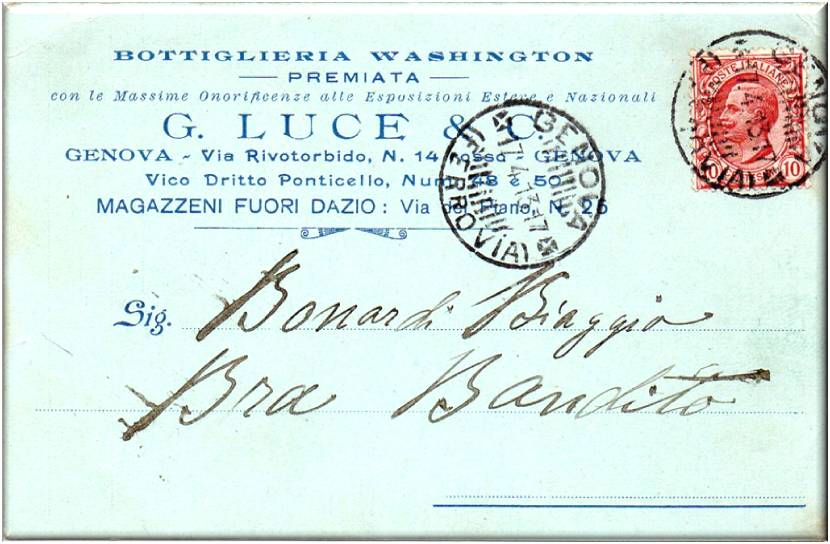 BOTTIGLIERIA WASHINGTON
PREMIATA
con le Massime Onorificenze alle Esposizioni Estere e Nazionali
G. LUCE & C.
GENOVA - Via Rivotorbido, N. 14 rosso GENOVA
Vico Dritto Ponticello, Num. 48 e 50
MAGAZZENI FUORI DAZIO: Via del Piano, N. 26
GENOVA
17.4.13-17
(FERROVIA)
POSTE ITALIANE
10 10
Sig. Bonardi Biaggio
Bra Bandito